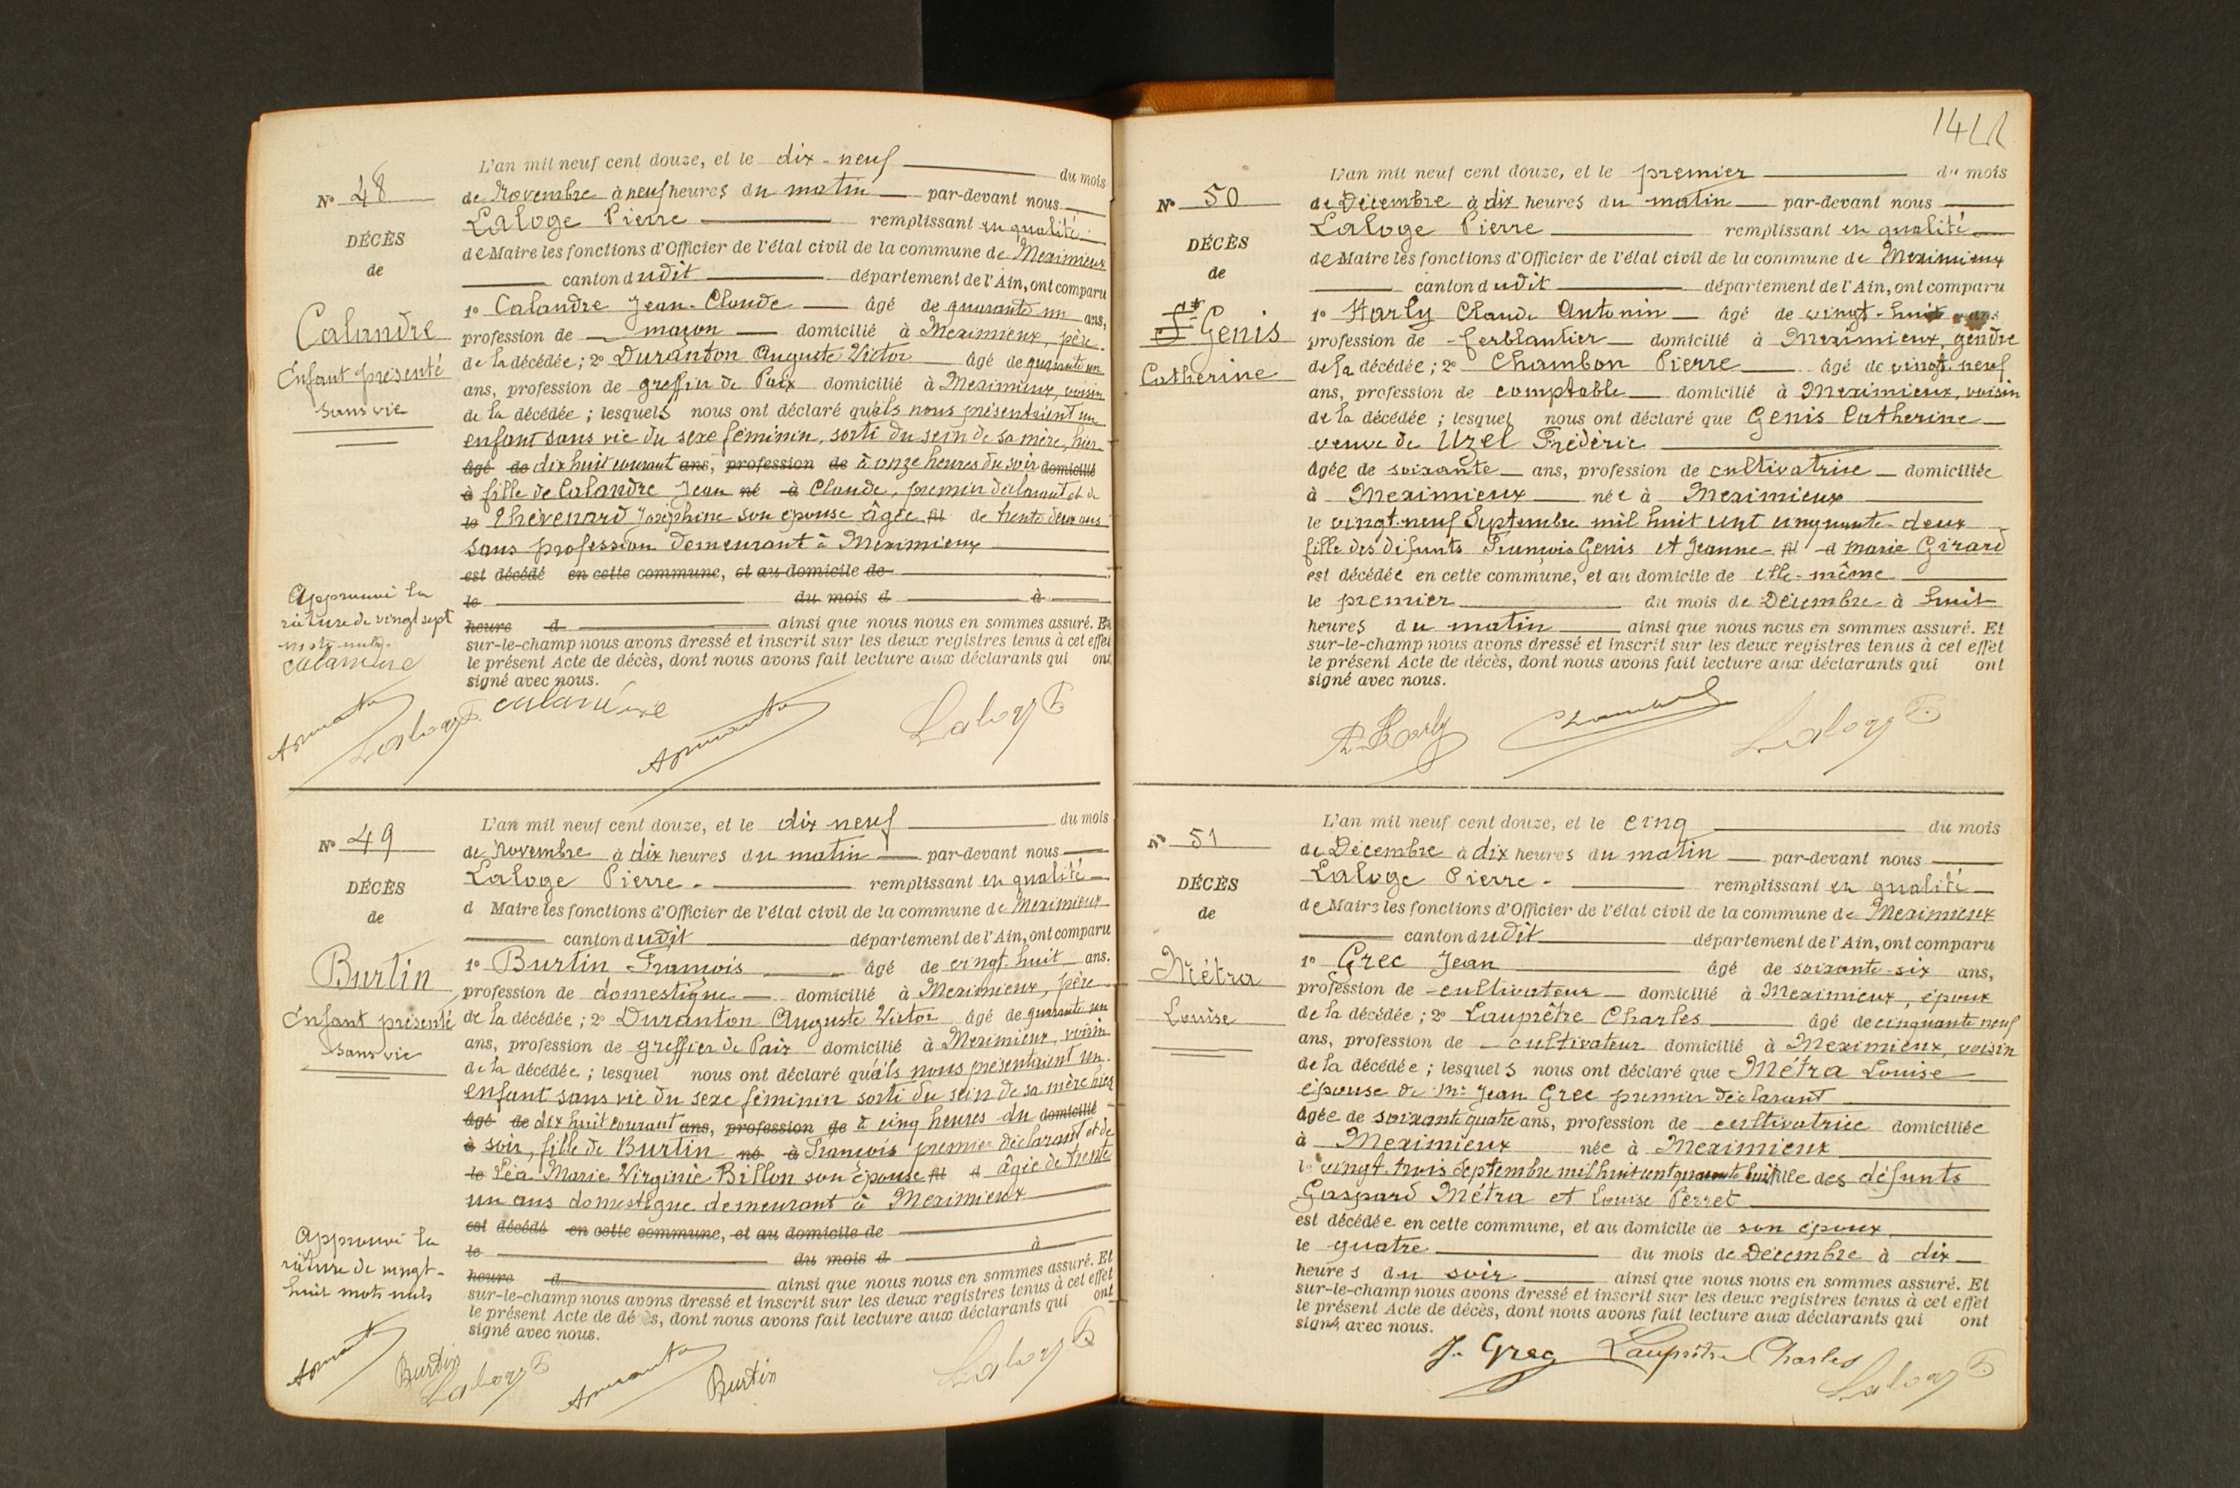 L'an mil neuf cent douze, et le dix-neuf du mois
Nº 48
de Novembre à neuf heures du matin par-devant nous
Laloge Pierre remplissant en qualité
DÉCÈS
de Maire les fonctions d'Officier de l'état civil de la commune de Meximieux
de
canton dudit département de l'Ain, ont comparu
1º Calandre Jean-Claude âgé de quarante un ans,
Calandre
profession de maçon domicilié à Meximieux, père
de la décédée; 2º Duranton Auguste Victor âgé de quarante un
Enfant présenté
ans, profession de greffier de Paix domicilié à Meximieux, voisin
sans vie
de la décédée; lesquels nous ont déclaré qu'ils nous présentaient un
enfant sans vie du sexe féminin, sorti du sein de sa mère, hier
âgé de dix huit courant ans, profession de à onze heures du soir domicilié
à fille de Calandre Jean né à Claude, premier déclarant et de
le Thévenard Joséphine son épouse âgée fil de trente deux ans
sans profession demeurant à Meximieux
est décédé en cette commune, et au domicile de
Approuvé la
rature de vingt sept
mots nuls.
le du mois d à
heure d ainsi que nous nous en sommes assuré. Et
sur-le-champ nous avons dressé et inscrit sur les deux registres tenus à cet effet
le présent Acte de décès, dont nous avons fait lecture aux déclarants qui ont
signé avec nous.
Calandre
Calandre
Laloge P
Laloge P
L'an mil neuf cent douze, et le dix neuf du mois
Nº 49
de Novembre à dix heures du matin par-devant nous
Laloge Pierre. remplissant en qualité
DÉCÈS
d Maire les fonctions d'Officier de l'état civil de la commune de Meximieux
de
canton dudit département de l'Ain, ont comparu
1º Burtin François âgé de vingt-huit ans.
Burtin
profession de domestique domicilié à Meximieux, père
Enfant présenté
de la décédée; 2º Duranton Auguste Victor âgé de quarante un
sans vie
ans, profession de greffier de Paix domicilié à Meximieux, voisin
de la décédée; lesquel nous ont déclaré qu'ils nous présentaient un
enfant sans vie du sexe féminin sorti du sein de sa mère hier
âgé de dix huit courant ans, profession de à cinq heures du domicilié
à soir, fille de Burtin né à François premier déclarant et de
le Léa Marie Virginie Billon son épouse fil d âgée de trente
un ans domestique demeurant à Meximieux
est décédé en cette commune, et au domicile de
Approuvé la
rature de vingt-
huit mots nuls
le du mois d à
heure d ainsi que nous nous en sommes assuré. Et
sur-le-champ nous avons dressé et inscrit sur les deux registres tenus à cet effet
le présent Acte de décès, dont nous avons fait lecture aux déclarants qui ont
signé avec nous.
Burtin
Laloge P
Burtin
Laloge P
L'an mil neuf cent douze, et le premier du mois
Nº 50
de Décembre à dix heures du matin par-devant nous
Laloge Pierre remplissant en qualité
DÉCÈS
de Maire les fonctions d'Officier de l'état civil de la commune de Meximieux
de
canton dudit département de l'Ain, ont comparu
1º Harly Claude Antonin âgé de vingt-huit ans
St Genis
profession de ferblantier domicilié à Meximieux, gendre
Catherine
de la décédée; 2º Chambon Pierre âgé de vingt-neuf
ans, profession de comptable domicilié à Meximieux, voisin
de la décédée; lesquel nous ont déclaré que Genis Catherine
veuve de Uzel Frédéric
âgée de soixante ans, profession de cultivatrice domiciliée
à Meximieux née à Meximieux
le vingt-neuf Septembre mil huit cent cinquante-deux
fille des défunts François Genis et Jeanne-fil d Marie Girard
est décédée en cette commune, et au domicile de elle-même
le premier du mois de Décembre à huit
heures du matin ainsi que nous nous en sommes assuré. Et
sur-le-champ nous avons dressé et inscrit sur les deux registres tenus à cet effet
le présent Acte de décès, dont nous avons fait lecture aux déclarants qui ont
signé avec nous.
Harly Chambon Laloge P
L'an mil neuf cent douze, et le cinq du mois
Nº 51
de Décembre à dix heures du matin par-devant nous
Laloge Pierre. remplissant en qualité
DÉCÈS
de Maire les fonctions d'Officier de l'état civil de la commune de Meximieux
de
canton dudit département de l'Ain, ont comparu
1º Grec Jean âgé de soixante-six ans,
Métra
profession de cultivateur domicilié à Meximieux, époux
Louise
de la décédée; 2º Lauprêtre Charles âgé de cinquante neuf
ans, profession de cultivateur domicilié à Meximieux, voisin
de la décédée; lesquels nous ont déclaré que Métra Louise
épouse de Mr Jean Grec premier déclarant
âgée de soixante quatre ans, profession de cultivatrice domiciliée
à Meximieux née à Meximieux
le vingt-trois Septembre mil huit cent quarante huit fille des défunts
Gaspard Métra et Louise Perret
est décédée en cette commune, et au domicile de son époux
le quatre du mois de Décembre à dix
heures du soir ainsi que nous nous en sommes assuré. Et
sur-le-champ nous avons dressé et inscrit sur les deux registres tenus à cet effet
le présent Acte de décès, dont nous avons fait lecture aux déclarants qui ont
signé avec nous.
J. Grec Lauprêtre Charles Laloge P